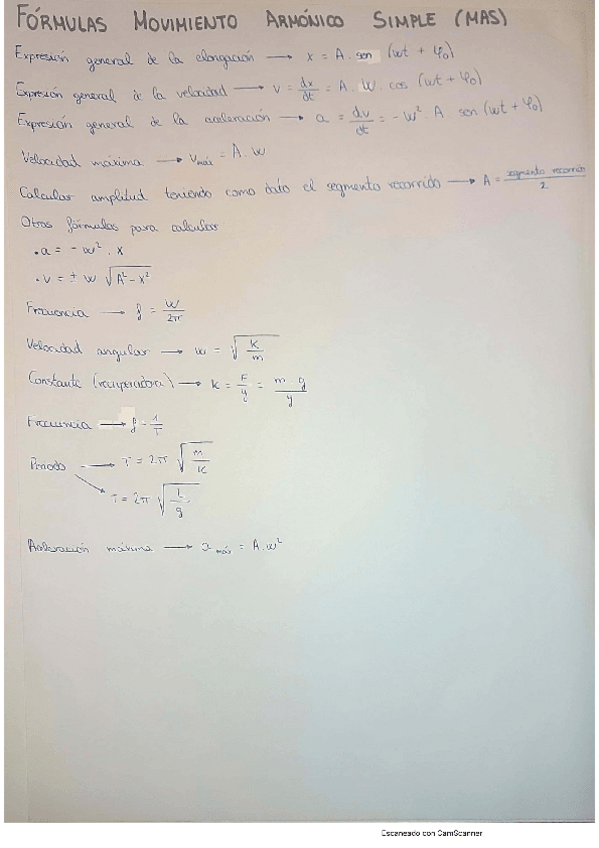 FÓRMULAS MOVIMIENTO ARMÓNICO SIMPLE (MAS)
Expresión general de la elongación → x = A. sen (wt + φ₀)
Expresión general de la velocidad → v = dx/dt = A. W. cos (wt + φ₀)
Expresión general de la aceleración → a = dv/dt = - w². A. sen (wt + φ₀)
Velocidad máxima → Vmáx = A. w
Calcular amplitud teniendo como dato el segmento recorrido → A = segmento recorrido/2
Otras fórmulas para calcular
• a = - w². x
• v = ± w √(A² - x²)
Frecuencia → f = W/2π
Velocidad angular → w = √(k/m)
Constante (recuperadora) → K = F/y = m. g/y
Frecuencia → f = 1/T
Periodo → T = 2π √(m/K)
→ T = 2π √(L/g)
Aceleración máxima → a máx = A. w²
Escaneado con CamScanner